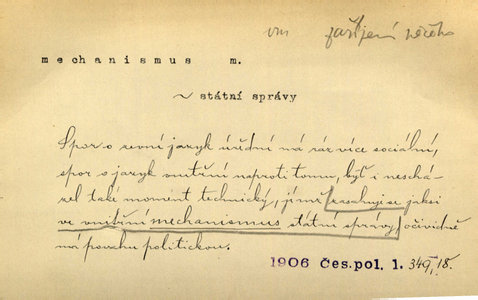 vm zajištění něčeho
mechanismus m.
~ státní správy
Spor o zevní jazyk úřední má ráz více sociální,
spor o jazyk vnitřní naproti tomu, byť i neschá-
zel také moment technický, jímž zasahuje se jaksi
ve vnitřní mechanismus státní správy, očividně
má povahu politickou.
1906 Čes.pol. 1. 349, 18.